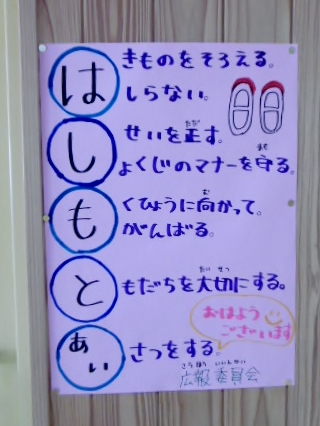 は きものをそろえる。
しらない。
し せいを正(ただ)す。
ょくじのマナーを守(まも)る。
も くひょうに向(む)かって。
がんばる。
と もだちを大切(たいせつ)にする。
あい さつをする。
おはよう
ございます
広報委員会(こうほういいんかい)